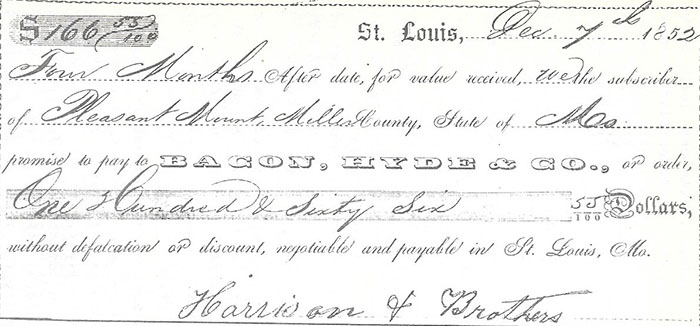 $166 55/100 St. Louis, Dec 7th 1852
Four Months After date, for value received, we the subscriber
of Pleasant Mount, Miller County, State of Mo
promise to pay to BACON, HYDE & CO., or order,
One Hundred & Sixty Six 55/100 Dollars,
without defalcation or discount, negotiable and payable in St. Louis, Mo.
Harrison & Brothers